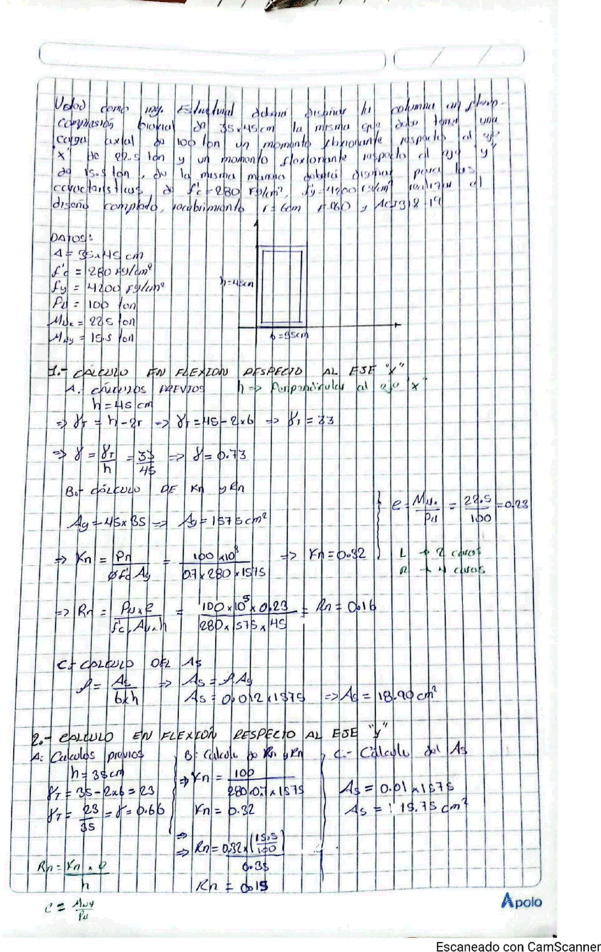 como ing. Estructural debera diseñar la columna en flexo-
compresión biaxial de 35x45cm la misma que debe tener una
carga axial de 100 ton un momento flexionante respecto al eje
"x" de 22.5 ton y un momento flexionante respecto al eje "y"
de 15.5 ton, de la misma manera debera diseñar para las
caracteristicas de f'c=280 kg/cm² fy=4200 kg/cm² realizar el
diseño completo, recubrimiento r=6cm y ACI318-19
DATOS:
A = 35x45 cm
f'c = 280 kg/cm²
fy = 4200 kg/cm²
Pu = 100 ton
Mux = 22.5 ton
Muy = 15.5 ton
h=45cm
b=35cm
1.- CÁLCULO EN FLEXION RESPECTO AL EJE "x"
A. CÁLCULOS PREVIOS h => Perpendicular al eje "x"
h = 45 cm
=> γT = h-2r => γT = 45-2x6 => γT = 33
=> γ = γT/h = 33/45 => γ = 0.73
B.- CÁLCULO DE Kn y Rn
e = Mux/Pu = 22.5/100 = 0.23
Ag = 45x35 => Ag = 1575 cm²
=> Kn = Pn/øf'c Ag = 100x10³/0.7x280x1575 => Kn = 0.32
L → 2 caras
R → 4 caras
=> Rn = Pu x e/f'c.Ag.h = 100x10⁵x0.23/280x1575x45 = Rn = 0.16
C.- CALCULO DEL As
ρ = As/bxh => As = ρ Ag
As = 0.012x1575 => As = 18.90 cm²
2.- CALCULO EN FLEXIÓN RESPECTO AL EJE "y"
A: Calculos previos
h = 35cm
γT = 35-2x6 = 23
γT = 23/35 = γ = 0.66
Rn = Kn.e/h
e = Muy/Pu
B: Calculo de Kn y Rn
=> Kn = 100/280.0.7x1575
Kn = 0.32
=>
=> Rn = 0.32x(15.5/100)/0.35
Rn = 0.15
C.- Cálculo del As
As = 0.01x1575
As = 15.75 cm²
Apolo
Escaneado con CamScanner